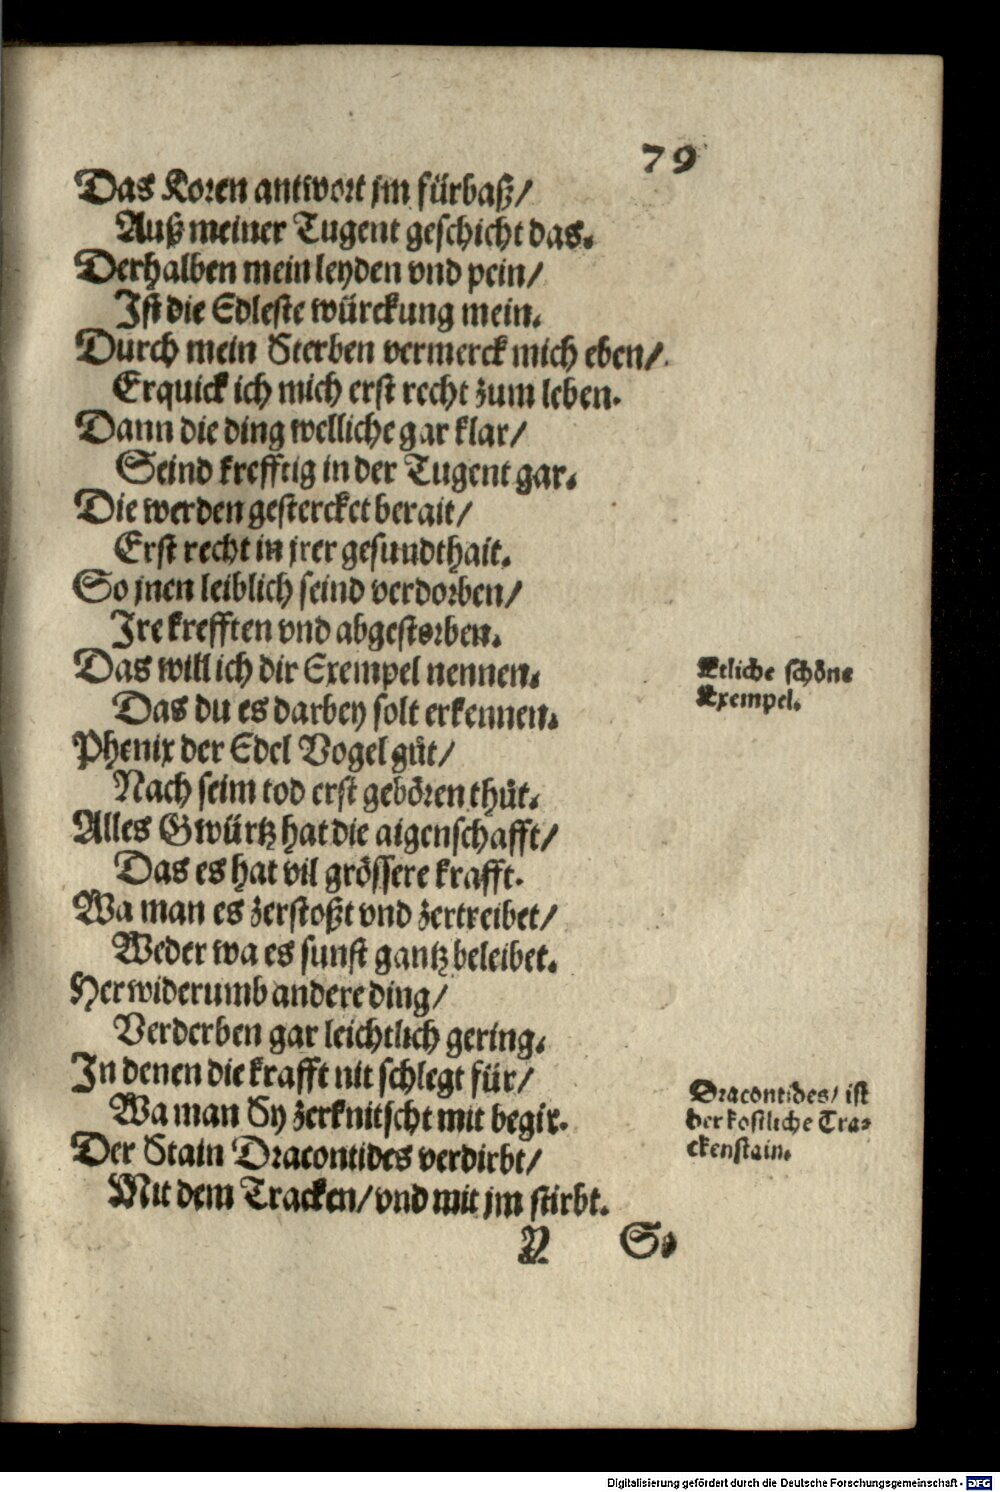 79
Das Koren antwort jm fürbaß/
Auß meiner Tugent geschicht das.
Derhalben mein leyden vnd pein/
Ist die Edleste würckung mein.
Durch mein Sterben vermerck mich eben/
Erquick ich mich erst recht zum leben.
Dann die ding welliche gar klar/
Seind krefftig in der Tugent gar.
Die werden gestercket berait/
Erst recht in jrer gesundthait.
So jnen leiblich seind verdorben/
Ire krefften vnd abgestorben.
Das will ich dir Exempel nennen.
Das du es darbey solt erkennen.
Etliche schöne
Exempel.
Phenix der Edel Vogel gůt/
Nach seim tod erst gebören thůt.
Alles Gwürtz hat die aigenschafft/
Das es hat vil grössere krafft.
Wa man es zerstoßt vnd zertreibet/
Weder wa es sunst gantz beleibet.
Herwiderumb andere ding/
Verderben gar leichtlich gering.
In denen die krafft nit schlegt für/
Wa man Sy zerknitscht mit begir.
Der Stain Dracontides verdirbt/
Mit dem Tracken/ vnd mit jm stirbt.
Dracontides/ ist
der kostliche Tra-
ckenstain.
S
Digitalisierung gefördert durch die Deutsche Forschungsgemeinschaft - DFG